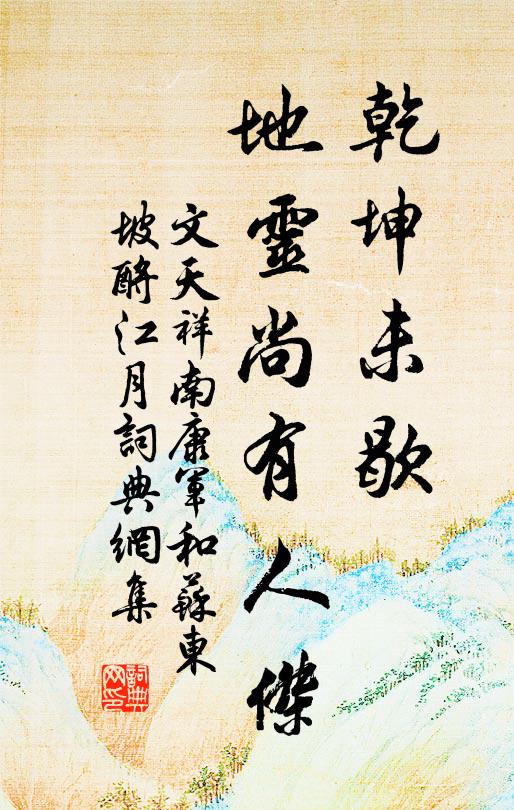 乾坤未歇
地靈尚有人傑
文天祥南康軍和蘇東
坡酹江月詞典網集
詞典
网印